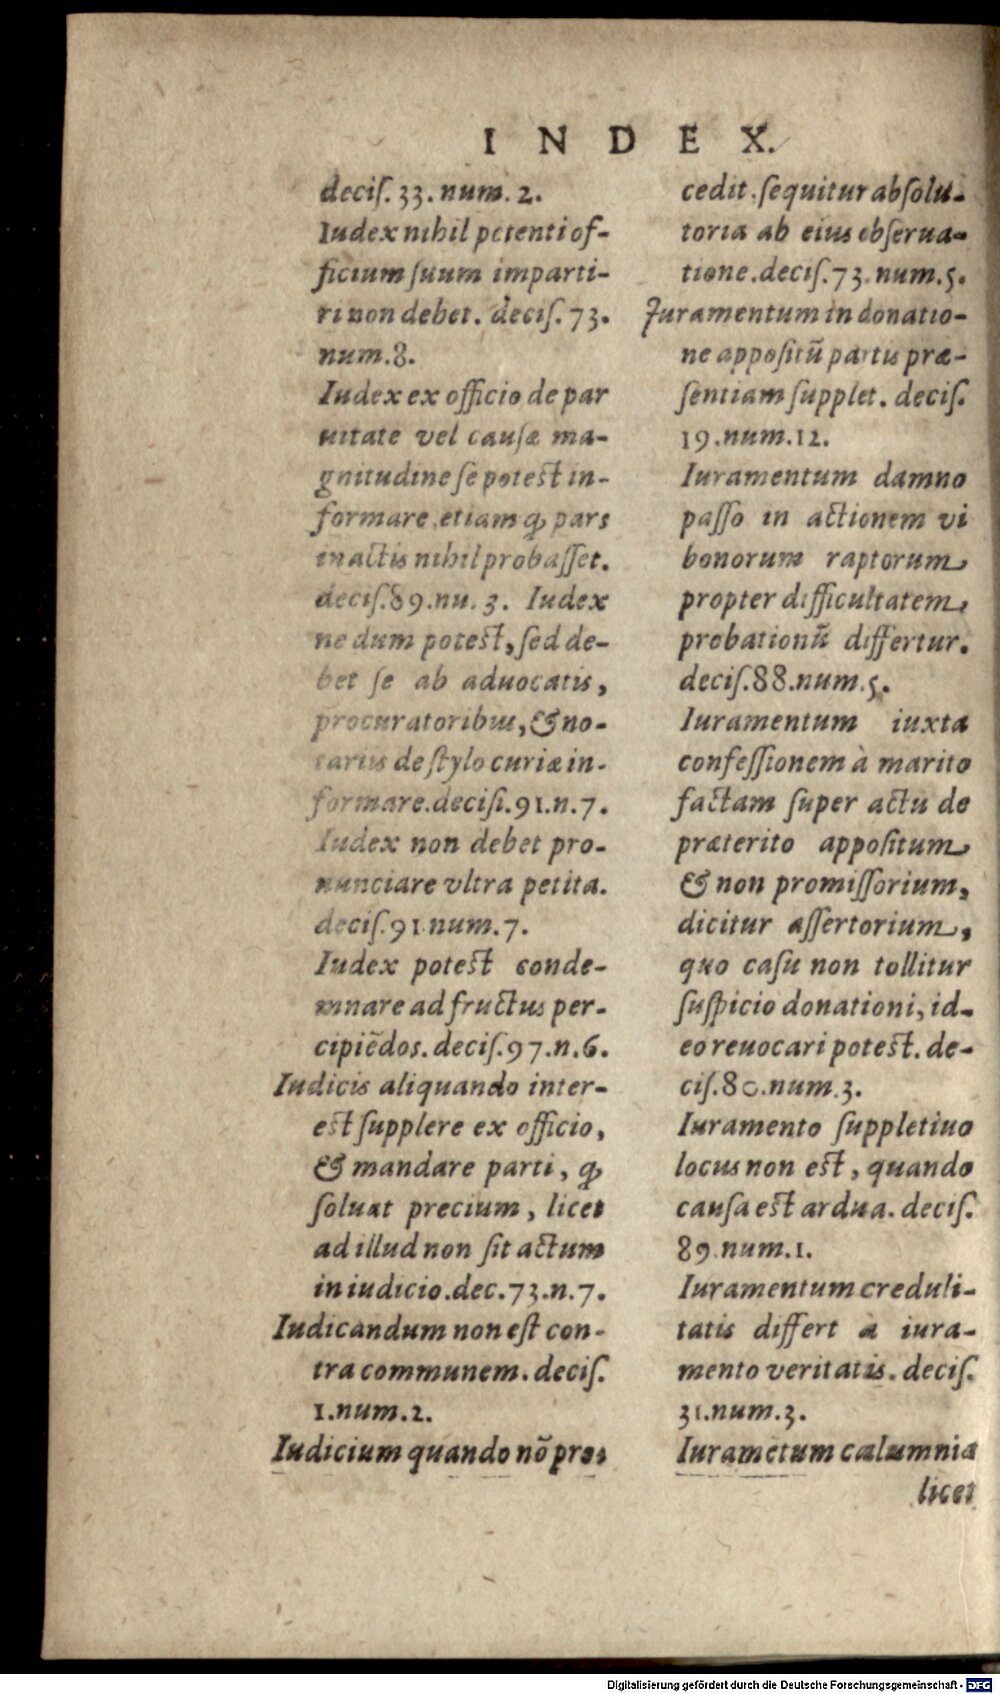 INDEX.
deciſ. 33. num. 2.
Iudex nihil petenti of-
ficium ſuum imparti-
ri non debet. deciſ. 73.
num. 8.
Iudex ex officio de par
uitate vel cauſæ ma-
gnitudine ſe potest in-
formare, etiam ꝙ pars
in actis nihil probaſſet.
deciſ. 89. nu. 3. Iudex
ne dum potest, ſed de-
bet ſe ab aduocatis,
procuratoribus, & no-
tariis de ſtylo curiæ in-
formare. deciſi. 91. n. 7.
Iudex non debet pro-
nunciare vltra petita.
deciſ. 91. num. 7.
Iudex potest conde-
mnare ad fructus per-
cipiẽdos. deciſ. 97. n. 6.
Iudicis aliquando inter-
est ſupplere ex officio,
& mandare parti, ꝙ
ſoluat precium, licet
ad illud non ſit actum
in iudicio. dec. 73. n. 7.
Iudicandum non eſt con-
tra communem. deciſ.
1. num. 2.
Iudicium quando nõ proe
cedit, ſequitur abſolu-
toria ab eius obſerua-
tione. deciſ. 73. num. 5.
Iuramentum in donatio-
ne appoſitũ partis præ-
ſentiam ſupplet. deciſ.
19. num. 12.
Iuramentum damno
paſſo in actionem vi
bonorum raptorum
propter difficultatem,
probationũ differtur.
deciſ. 88. num. 5.
Iuramentum iuxta
confeſſionem à marito
factam ſuper actu de
præterito appoſitum
& non promiſſorium,
dicitur aſſertorium,
quo caſu non tollitur
ſuſpicio donationi, id-
eo reuocari potest. de-
ciſ. 80. num. 3.
Iuramento ſuppletiuo
locus non est, quando
cauſa est ardua. deciſ.
89. num. 1.
Iuramentum creduli-
tatis differt a iura-
mento veritatis. deciſ.
31. num. 3.
Iurametum calumnia
licet
Digitalisierung gefördert durch die Deutsche Forschungsgemeinschaft - DFG